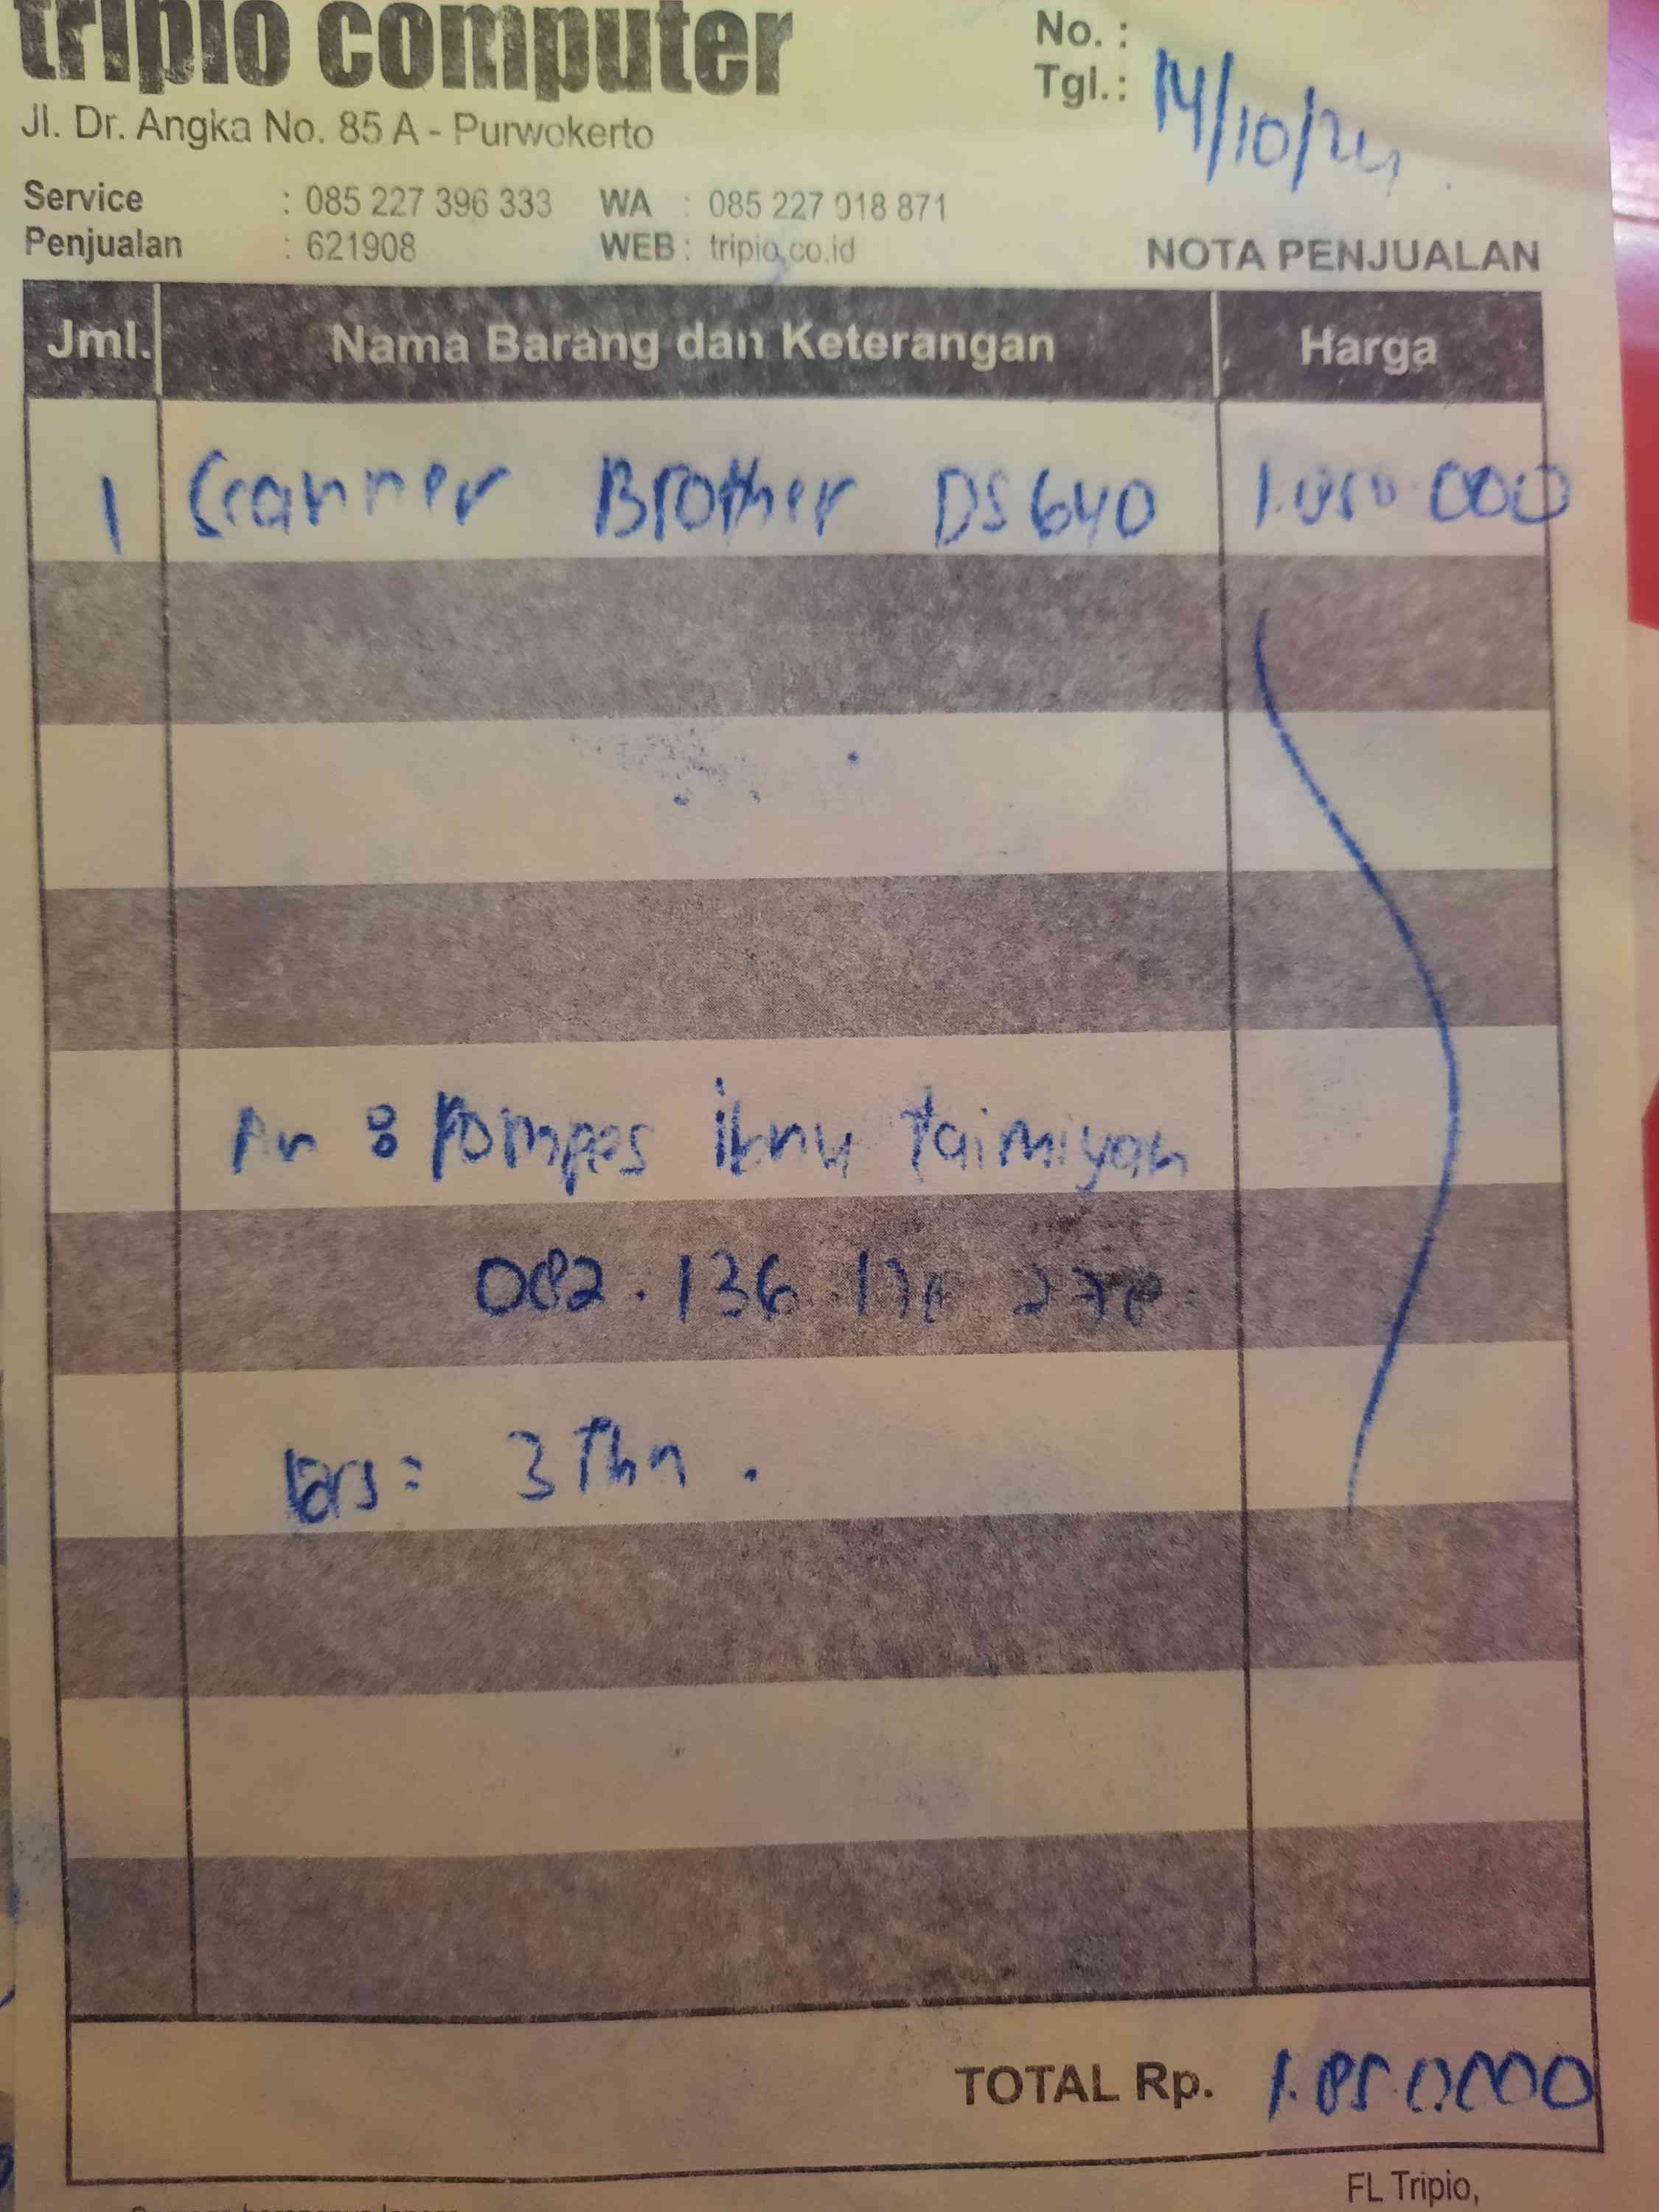 tripio computer
No. :
Tgl. : 14/10/24
Jl. Dr. Angka No. 85 A - Purwokerto
Service : 085 227 396 333 WA : 085 227 018 871
Penjualan : 621908 WEB : tripio.co.id
NOTA PENJUALAN
Jml. Nama Barang dan Keterangan Harga
1 Scanner Brother DS640 1.850.000
An : Pompes ibnu taimiyah
082.136
= 3 Thn.
TOTAL Rp. 1.850.000
FL Tripio,